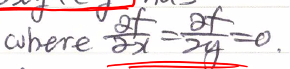 where ∂f/∂x = ∂f/∂y = 0.